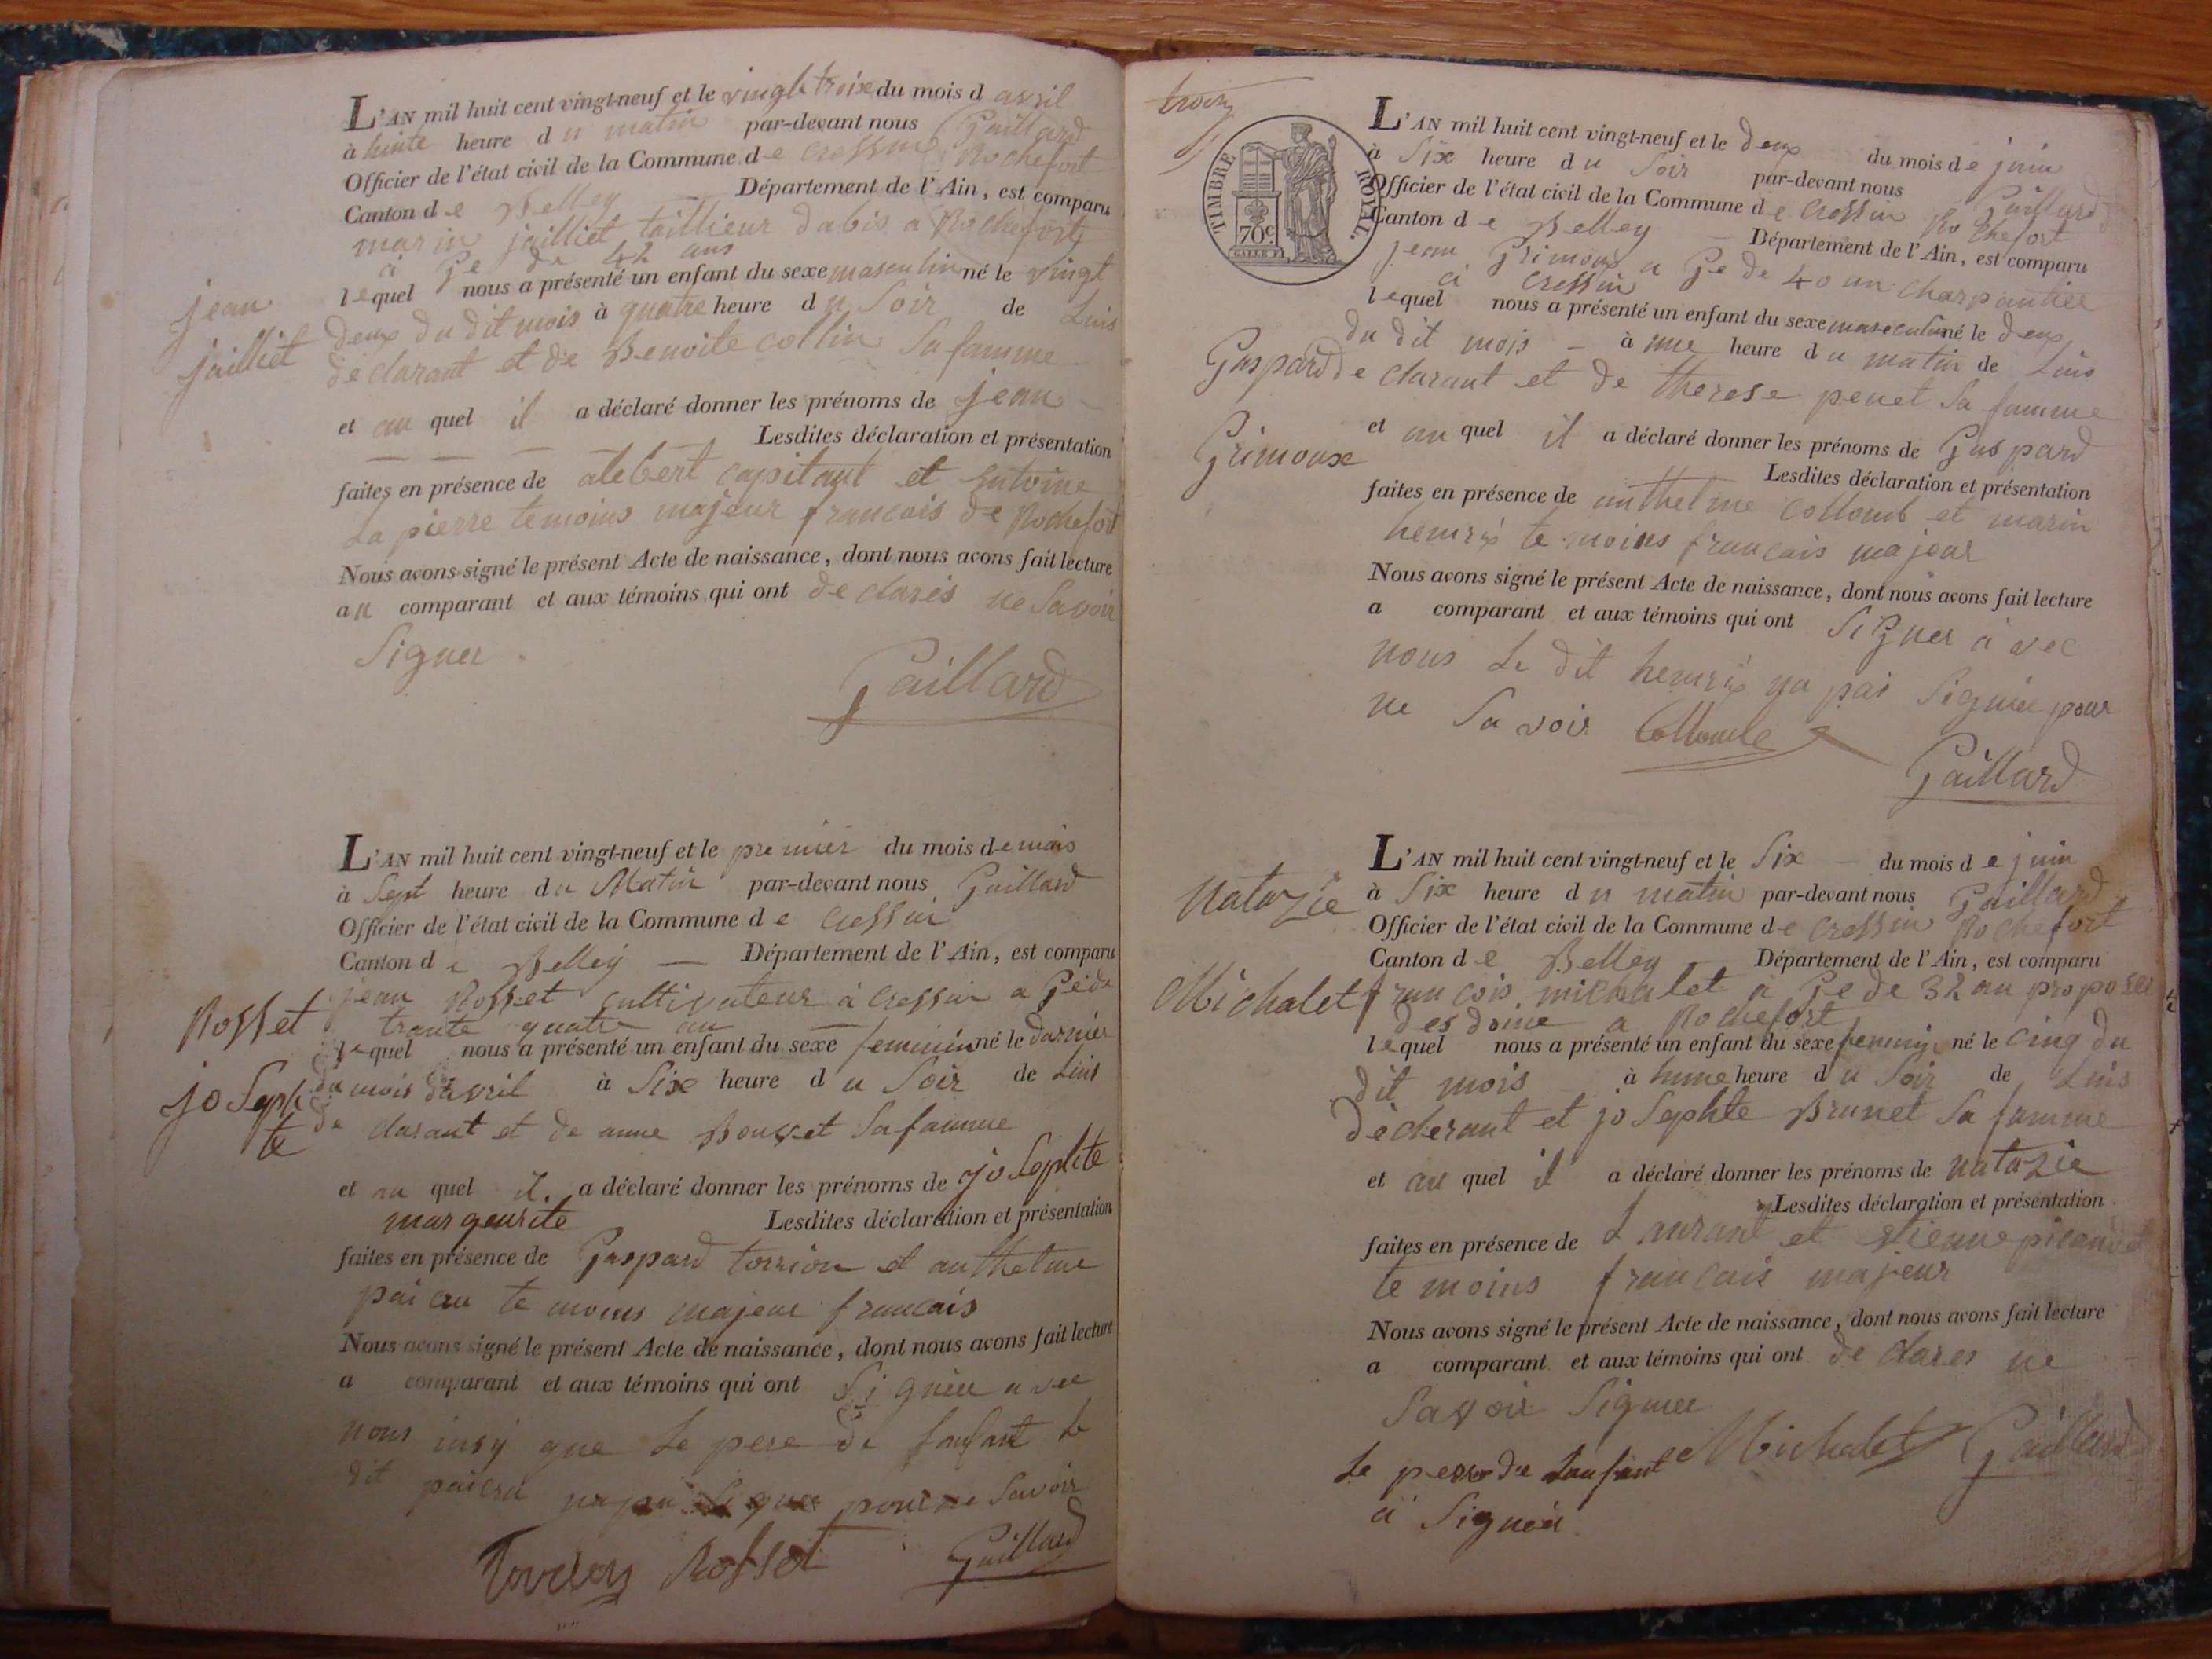 L'AN mil huit cent vingt-neuf et le vingt troix du mois d avril
à huite heure d u matin par-devant nous Gaillard
Officier de l'état civil de la Commune d e Cressin Rochefort
Canton d e Belley Département de l'Ain, est comparu
marin jailliet taillieur dabis a Rochefort
a Ge de 42 ans
jean
jailliet
lequel nous a présenté un enfant du sexe masculin né le vingt
deux du dit mois à quatre heure d u Soir de Luis
de clarant et de Benoite collin Sa famme
et au quel il a déclaré donner les prénoms de jean
Lesdites déclaration et présentation
faites en présence de alebert capitant et antoine
La pierre temoins majeur francais de Rochefort
Nous avons signé le présent Acte de naissance, dont nous avons fait lecture
au comparant et aux témoins qui ont de clarés ne Savoir
Signer
Gaillard
L'AN mil huit cent vingt-neuf et le premier du mois de mais
à Sept heure du Matin par-devant nous Gaillard
Officier de l'état civil de la Commune d e Cressin
Canton d e Belley Département de l'Ain, est comparu
Rosset
joSeph
te
jean Rosset cultivateur à Cressin a Gé de
trante quatre an
lequel nous a présenté un enfant du sexe feminin né le darnier
du mois davril à Six heure d u Soir de Luis
de clarant et de anne Bousset Sa famme
et au quel il a déclaré donner les prénoms de joSephte
margeurite Lesdites déclaration et présentation
faites en présence de Gaspard torrion et anthelme
te moins majeur francais
Nous avons signé le présent Acte de naissance, dont nous avons fait lecture
a comparant et aux témoins qui ont Si gniée avec
nous insy que Le pere de Lanfant Le
dit pour ne Savoir
Rosset Gaillard
TIMBRE ROYAL
70 c.
L'AN mil huit cent vingt-neuf et le deux du mois de juin
à Six heure d u Soir par-devant nous Gaillard
Officier de l'état civil de la Commune d e Cressin Rochefort
Canton d e Belley Département de l'Ain, est comparu
jean Grimoux a Ge de 40 an charpantiee
a Cressin
Gaspard
Grimoux
lequel nous a présenté un enfant du sexe masculin né le deux
du dit mois à une heure d u matin de Luis
de clarant et de therese penet Sa famme
et au quel il a déclaré donner les prénoms de Gaspard
Lesdites déclaration et présentation
faites en présence de anthelme Collomb et marin
henrix te moins francais majeur
Nous avons signé le présent Acte de naissance, dont nous avons fait lecture
a comparant et aux témoins qui ont SiGner a vec
nous Le dit henrix na pas Signée pour
ne Sa voir Collomb
Gaillard
L'AN mil huit cent vingt-neuf et le Six du mois d e juin
à Six heure d u matin par-devant nous Gaillard
Officier de l'état civil de la Commune d e Cressin Rochefort
Canton d e Belley Département de l'Ain, est comparu
Natazie
Michalet
francois michalet a Ge de 32 an proposee
des doine a Rochefort
lequel nous a présenté un enfant du sexe né le cinq du
dit mois à hune heure d u Soir de Luis
déclerant et joSephte Brunet Sa famme
et au quel il a déclaré donner les prénoms de natazie
Lesdites déclaration et présentation
faites en présence de Laurant et etienne
te moins francais majeur
Nous avons signé le présent Acte de naissance, dont nous avons fait lecture
a comparant et aux témoins qui ont de clares ne
Savoir Signer
Michalet Gaillard
Le pere de Lanfant
a Signée